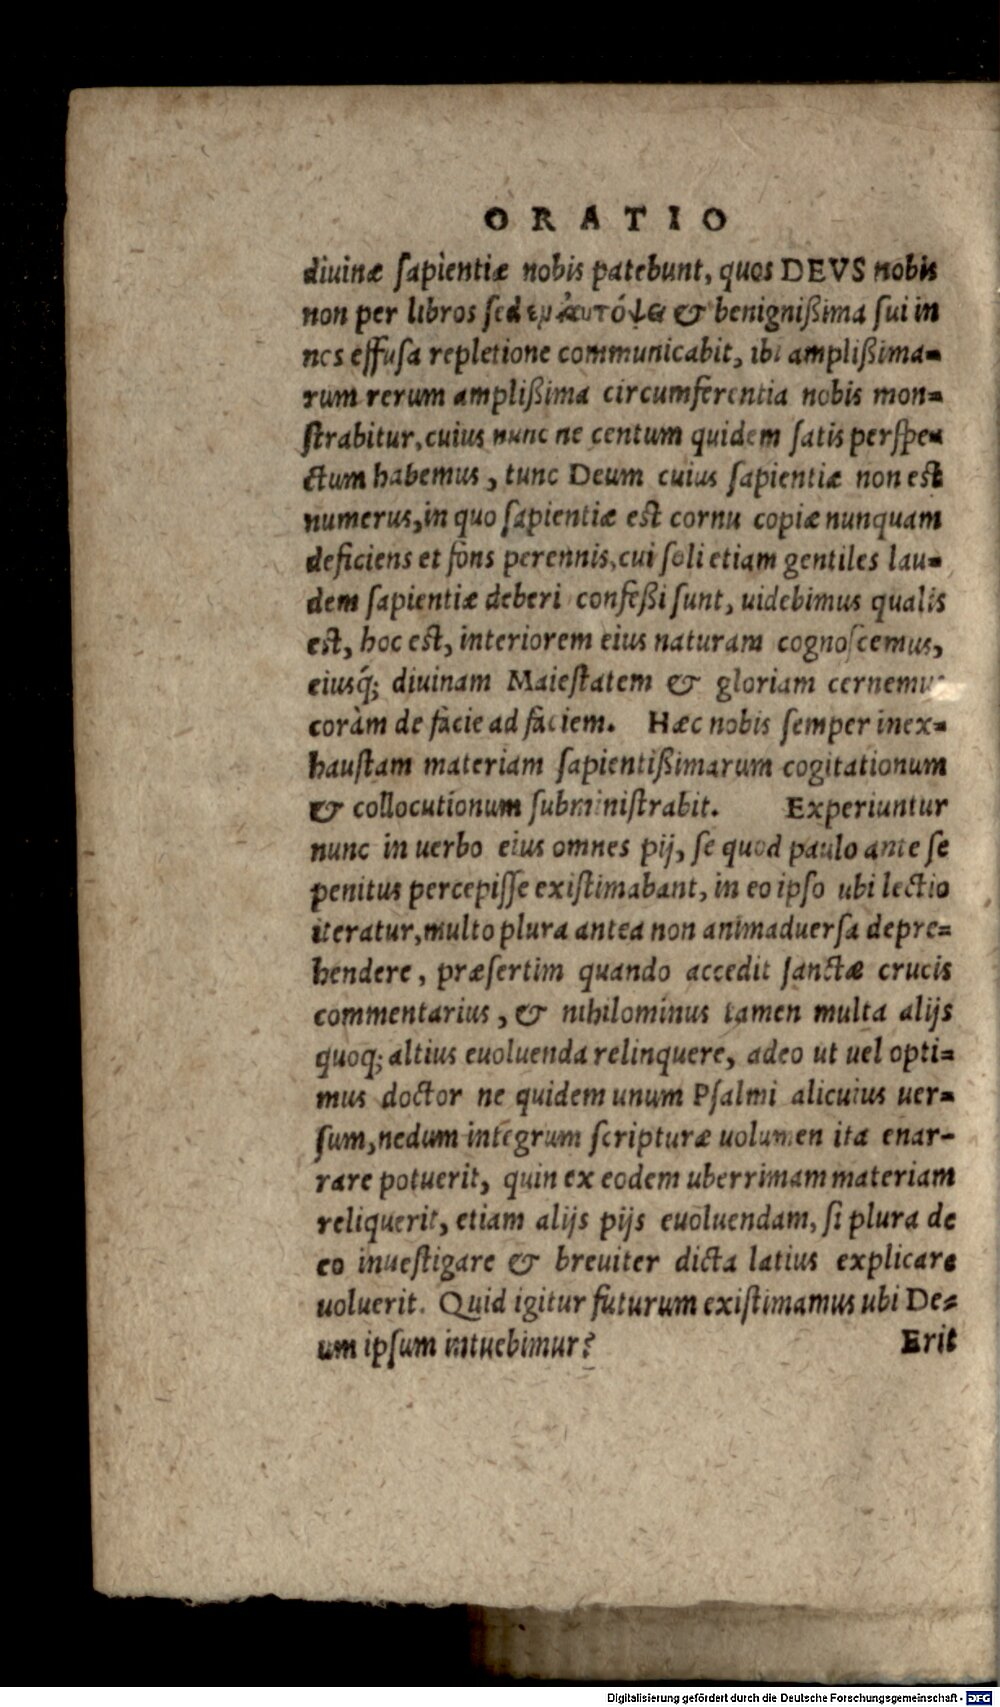 ORATIO
diuinæ ſapientiæ nobis patebunt, quos DEVS nobis
non per libros ſed & benignißima ſui in
nos effuſa repletione communicabit, ibi amplißima=
rum rerum amplißima circumferentia nobis mon=
ſtrabitur, cuius nunc ne centum quidem ſatis perſpe=
ctum habemus, tunc Deum cuius ſapientiæ non est
numerus, in quo ſapientiæ est cornu copiæ nunquam
deficiens et fons perennis, cui ſoli etiam gentiles lau=
dem ſapientiæ deberi confeßi ſunt, uidebimus qualis
est, hoc est, interiorem eius naturam cognoſcemus,
eiusq́; diuinam Maieſtatem & gloriam cernemus
coràm de facie ad faciem. Hæc nobis ſemper inex=
hauſtam materiam ſapientißimarum cogitationum
& collocutionum ſubminiſtrabit. Experiuntur
nunc in uerbo eius omnes pij, ſe quod paulo ante ſe
penitus percepiſſe exiſtimabant, in eo ipſo ubi lectio
iteratur, multo plura antea non animaduerſa depre=
hendere, præſertim quando accedit ſanctæ crucis
commentarius, & nihilominus tamen multa alijs
quoq; altius euoluenda relinquere, adeo ut uel opti=
mus doctor ne quidem unum Pſalmi alicuius uer=
ſum, nedum integrum ſcripturæ uolumen ita enar-
rare potuerit, quin ex eodem uberrimam materiam
reliquerit, etiam alijs pijs euoluendam, ſi plura de
eo inueſtigare & breuiter dicta latius explicare
uoluerit. Quid igitur futurum exiſtimamus ubi De=
um ipſum intuebimur? Erit
Digitalisierung gefördert durch die Deutsche Forschungsgemeinschaft - DFG